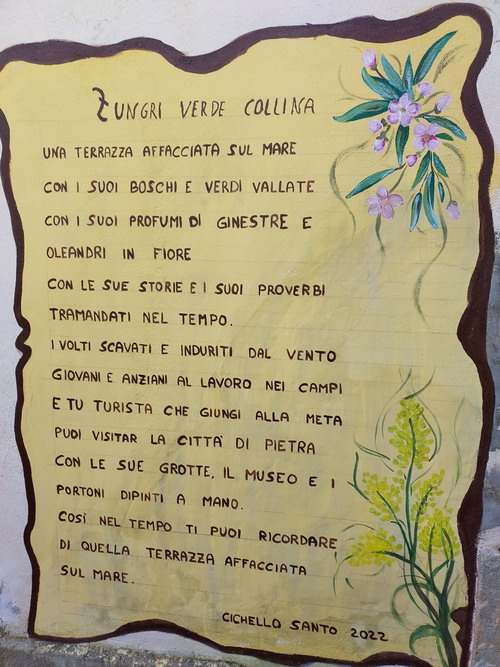 ZUNGRI VERDE COLLINA
UNA TERRAZZA AFFACCIATA SUL MARE
CON I SUOI BOSCHI E VERDI VALLATE
CON I SUOI PROFUMI DI GINESTRE E
OLEANDRI IN FIORE
CON LE SUE STORIE E I SUOI PROVERBI
TRAMANDATI NEL TEMPO.
I VOLTI SCAVATI E INDURITI DAL VENTO
GIOVANI E ANZIANI AL LAVORO NEI CAMPI
E TU TURISTA CHE GIUNGI ALLA META
PUOI VISITAR LA CITTÀ DI PIETRA
CON LE SUE GROTTE, IL MUSEO E I
PORTONI DIPINTI A MANO.
COSÌ NEL TEMPO TI PUOI RICORDARE
DI QUELLA TERRAZZA AFFACCIATA
SUL MARE.
CICHELLO SANTO 2022